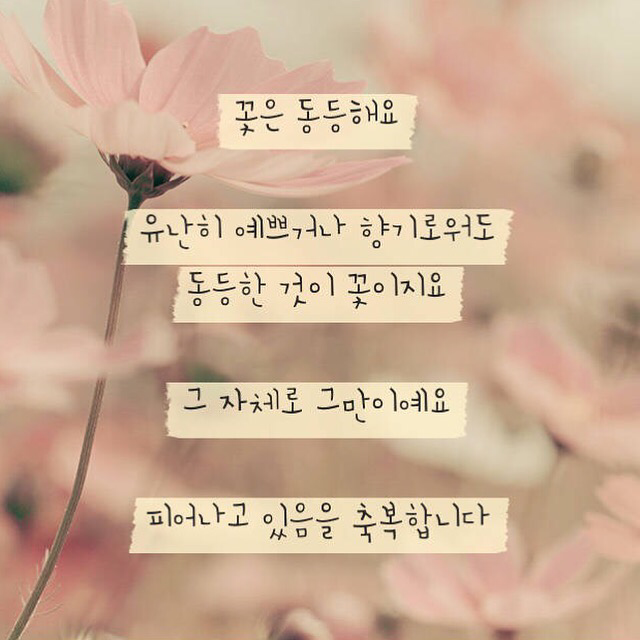 꽃은 동등해요
유난히 예쁘거나 향기로워도
동등한 것이 꽃이지요
그 자체로 그만이예요
피어나고 있음을 축복합니다